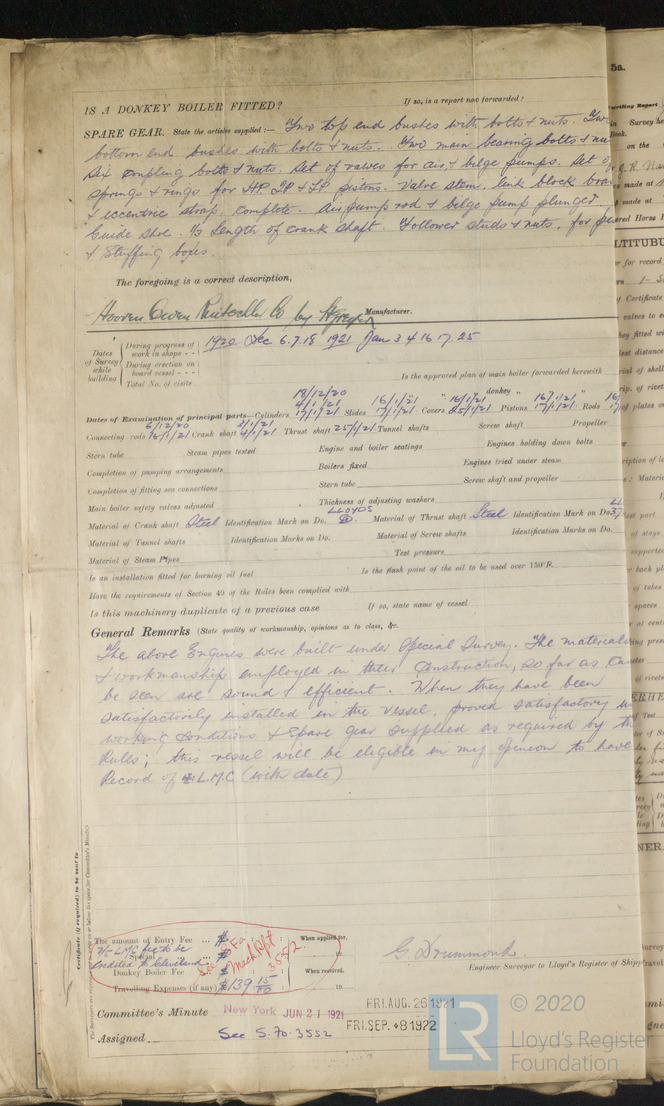 5a.
IS A DONKEY BOILER FITTED?
If so, is a report now forwarded?
SPARE GEAR. State the articles supplied:— Two top end bushes with bolts & nuts. Two
bottom end bushes with bolts & nuts. Two main bearing bolts & nu
Six coupling bolts & nuts. Set of valves for air, & belge pumps. Set o
springs & rings for HP IP & LP pistons. Valve stem, link block bra
& eccentric strap, complete. Air pump rod & belge pump plunger
Guide shoe. 1/3 Length of crank shaft. Follower studs & nuts, for
& Stuffing boxes.
The foregoing is a correct description,
Hooven Owen Rentschler Co by
Manufacturer.
Dates of Survey while building
During progress of work in shops - -
1920 Dec 6.7.18 1921 Jan 3 4 16 17. 25
During erection on board vessel - - -
Total No. of visits
Is the approved plan of main boiler forwarded herewith
" " donkey " " "
Dates of Examination of principal parts—Cylinders 18/12/20 4/1/21 17/1/21 Slides 16/1/21 17/1/21 Covers 16/1/21 25/1/21 Pistons 16/1/21 17/1/21 Rods
Connecting rods 6/12/20 16/1/21 Crank shaft 3/1/21 4/1/21 Thrust shaft 25/1/21 Tunnel shafts Screw shaft Propeller
Stern tube Steam pipes tested Engine and boiler seatings Engines holding down bolts
Completion of pumping arrangements Boilers fixed Engines tried under steam
Completion of fitting sea connections Stern tube Screw shaft and propeller
Main boiler safety valves adjusted Thickness of adjusting washers
Material of Crank shaft Steel Identification Mark on Do. LLOYDS D. Material of Thrust shaft Steel Identification Mark on Do.
Material of Tunnel shafts Identification Marks on Do. Material of Screw shafts Identification Marks on Do.
Material of Steam Pipes Test pressure
Is an installation fitted for burning oil fuel Is the flash point of the oil to be used over 150°F.
Have the requirements of Section 49 of the Rules been complied with
Is this machinery duplicate of a previous case If so, state name of vessel
General Remarks (State quality of workmanship, opinions as to class, &c.
The above Engines were built under Special Survey. The materials
& workmanship employed in their construction, so far as can
be seen are sound & efficient. When they have been
satisfactorily installed in the vessel, proved satisfactory u
working conditions & spare gear supplied as required by th
Rules; this vessel will be eligible in my opinion to have
Record of LMC (with date)
Certificate (if required) to be sent to
The amount of Entry Fee ... $ : : When applied for,
LMC fee to be
Special
credited to Cleveland
Donkey Boiler Fee ... $ : : When received,
Travelling Expenses (if any) $ 139 15/00
See Fa
Mach Rpt
3552
G. Drummond.
Engineer Surveyor to Lloyd's Register of Ship
Committee's Minute New York JUN 21 1921
FRI. AUG. 26 1921
FRI. SEP. 8 1922
Assigned See S. 70. 3552
LR
© 2020
Lloyd's Register
Foundation